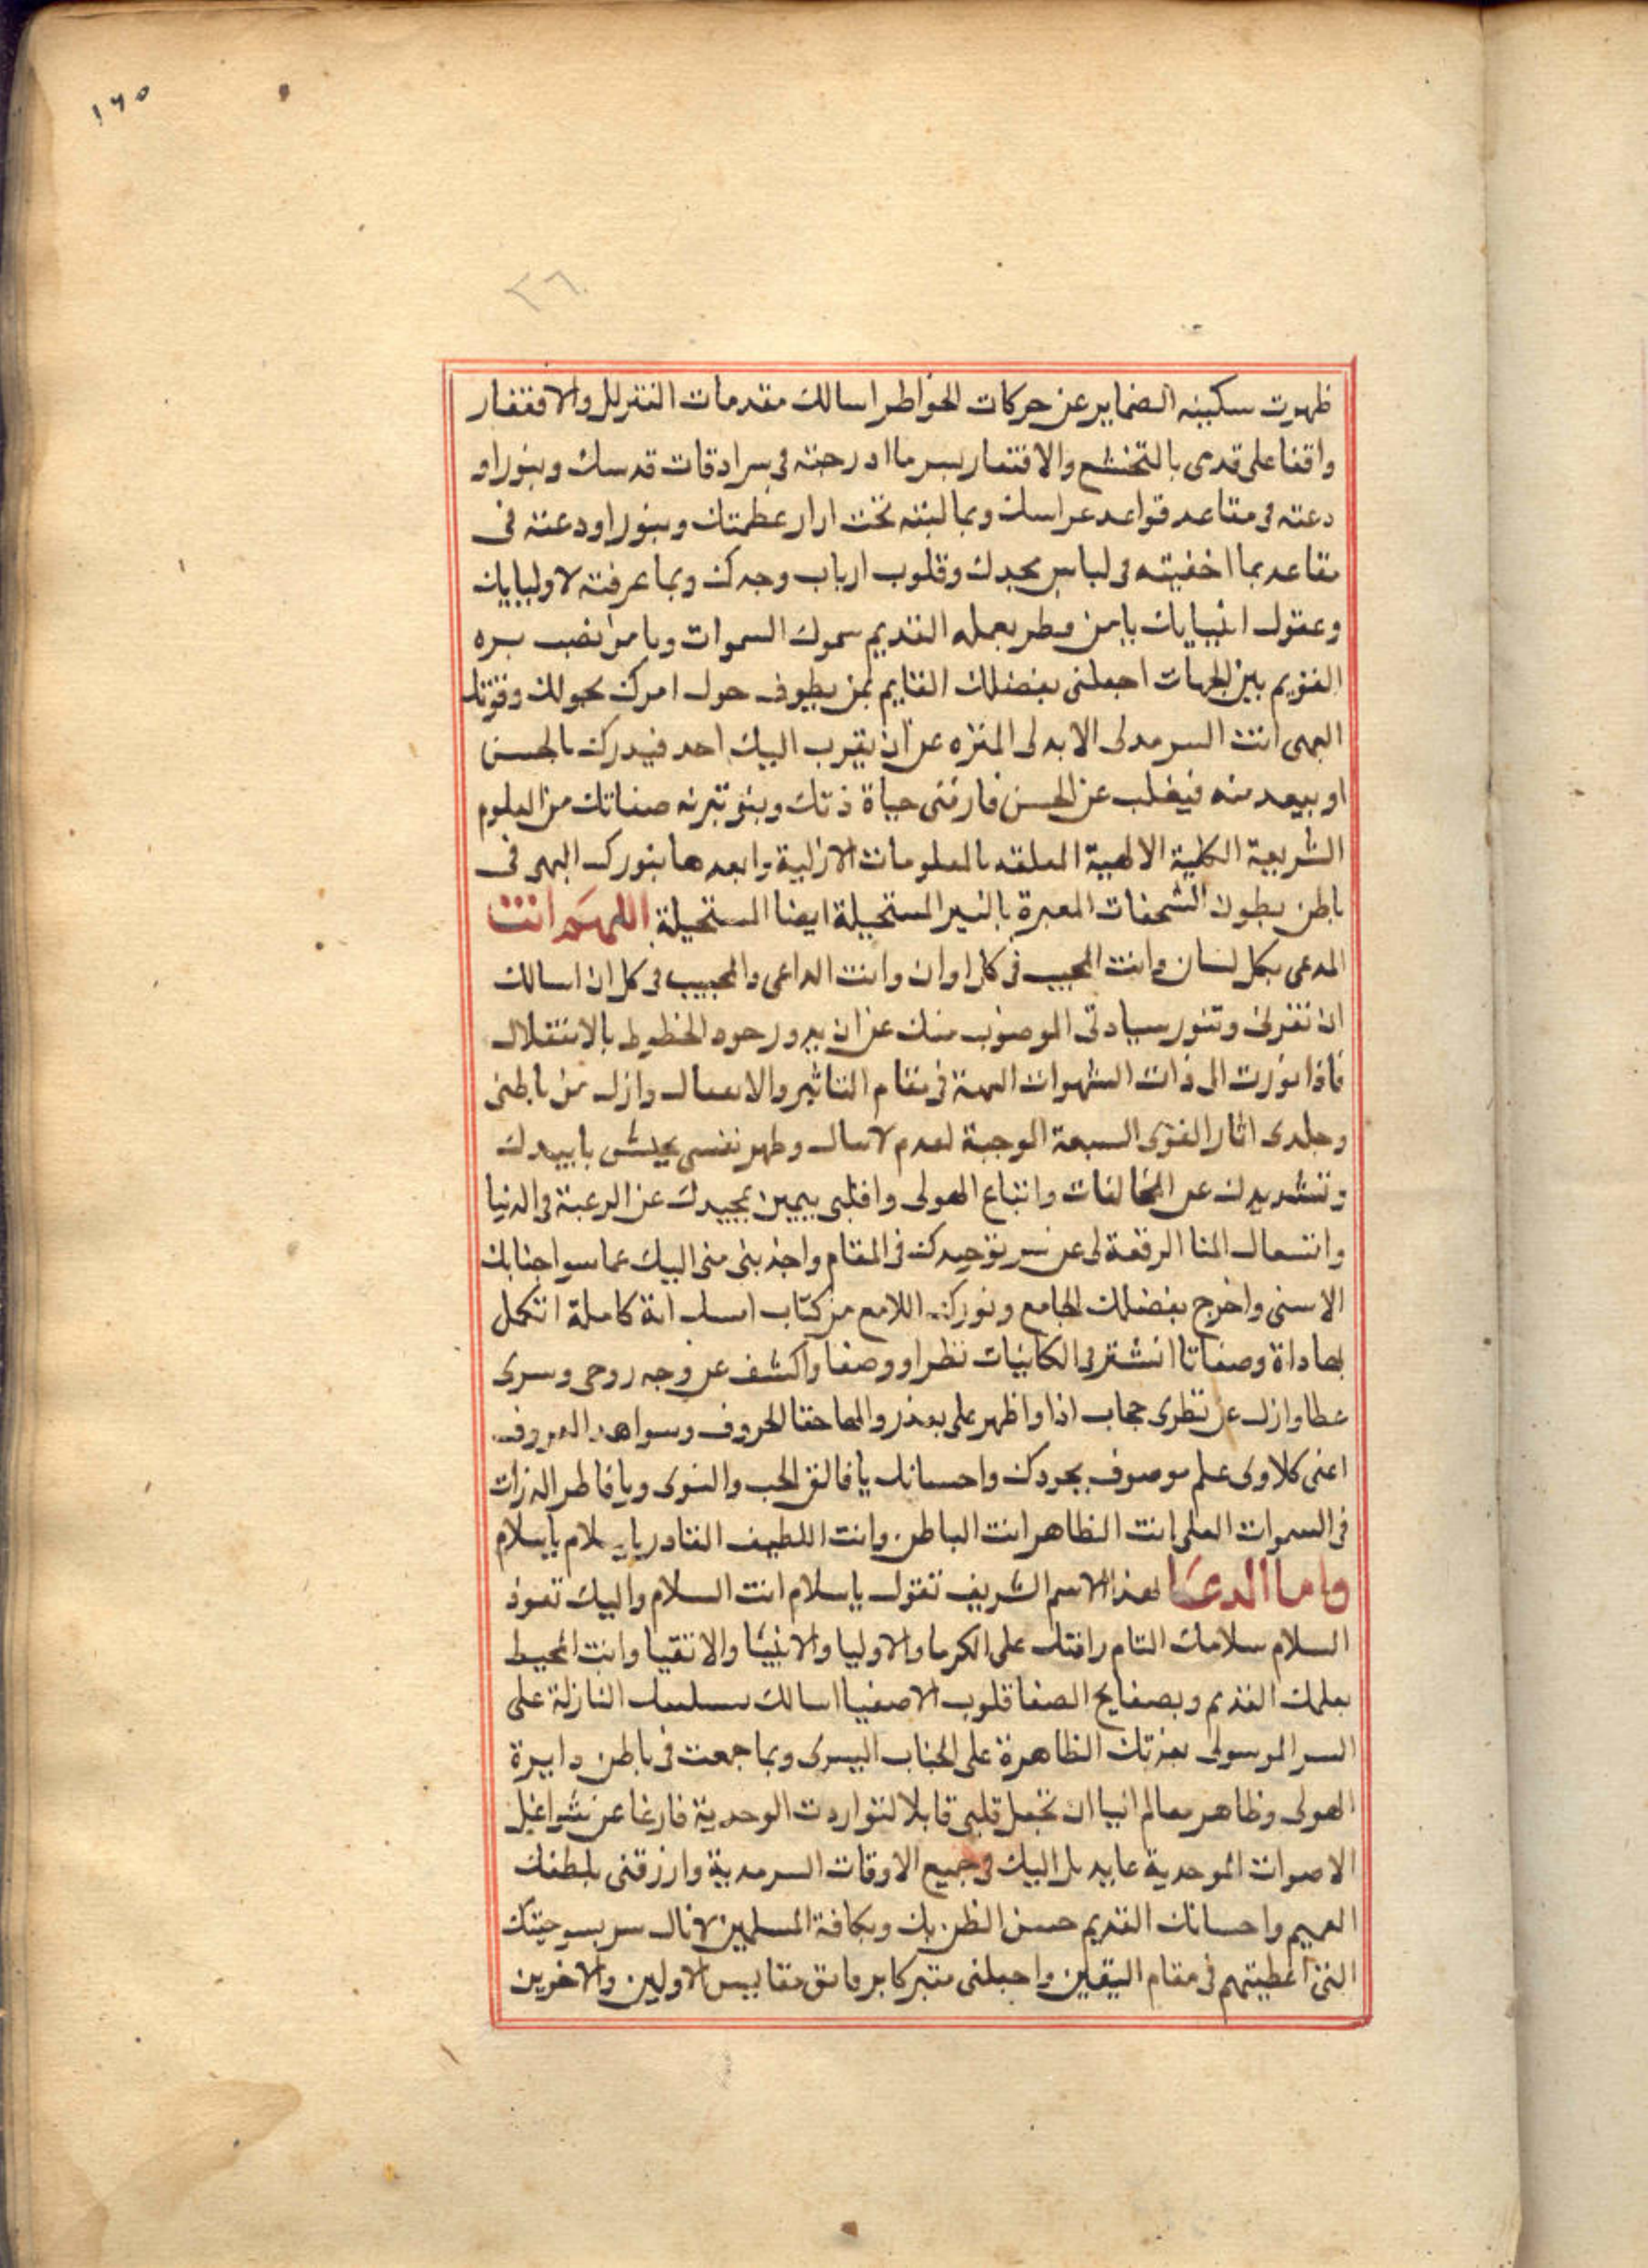 ١٦٥
٢٦
ظهوت سكينه الضماير عن حركات الخواطر اسالك مقدمات التذلل والافتقار
واقفا على قدمى بالتخشع والافتقار بسر ما ادرجته فى سرادقات قدسك وبنور او
دعته فى مقاعد قواعد عراسك وبما لبثته تحت ازار عظمتك وبنور اودعته فى
مقاعد بما اخفيته فى لباس مجدك وقلوب ارباب وجدك وبما عرفته لاوليايك
وعقول انبيايك يا من فطر بعمله القديم سموك السموات ويا من نصب سره
القويم بين الجهات اجعلنى بفضلك القايم ممن يطوف حول امرك بحولك وقوتك
الهى انت السرمدى الابدى المنزه عن ان يقرب اليك احد فيدرك بالحسن
او يبعد منه فيغلب عن الحسن فارزقنى حياة ذتك وبنو صفاتك من العلوم
الشريعية الكلية الالهية المعلقه بالمعلومات الازلية وابعدها بنورك البهى فى
باطن بطون المعبرة بالنير المستحيلة ايضا المستحيلة اللهم انت
المدعى بكل لسان وانت المجيب فى كل اوان وانت الداعى والمجيب فى كل ان اسالك
ان وتنور سيادتى منك عن ان يدور حوه الخطوط بالانتقال
فاذا نورت الى ذات الشهوات البهية فى مقام التاثير والانفعال وازل من باطنى
وجلدى اثار القوى السبعة الوجبة لعدم وطهر نفسى بجيش تاييدك
وتشديدك عن المخالفات واتباع الهوى واقلبى بيمين تمجيدك عن الرغبة فى الدنيا
وانتسعال المنا الرفعة لى عن سر توحيدك فى المقام واجذبنى منى اليك عما سوا جنابك
الاسنى واخرج بفضلك الجامع ونورك اللامع من كتاب اية كاملة اتكمل
بها داة وصفاتا انشر فى الكاينات نظرا ووصفا واكشف عن وجه روحى وسرى
غطا وازل عن نظرى حجاب اذا واظهر على الحروف وسواهد المعروف
اعنى كلاوى علم موصوف بجودك واحسانك يا فالق الحب والنوى ويا فاطر الذرات
فى السموات العلى انت الظاهر انت الباطن وانت اللطيف القادر يا سلام يا سلام
واما الدعا لهذا الاسم الشريف تقول يا سلام انت السلام واليك تعود
السلام سلامك التام رافتك على الكرما والاوليا والانبيا والاتقيا وانت المحيط
بعلمك القديم وبصفايح الصفا قلوب الاصفيا اسالك النازلة على
السر الموسوى بعزتك الظاهرة على الجناب اليسرى وبما جمعت فى باطن دايرة
الهوى وظاهر معالم انبيا ان تجعل قلبى قابلا لتواردت الوحدية فارغا عن شواغل
الاصوات الموحدية عايد بل اليك فى جميع الاوقات السرمدية وارزقنى بلطفك
العميم واحسانك القديم حسن الظن بك وبكافة المسلمين لانال سر
التى اعطيتهم فى مقام اليقين واجعلنى متبركا مقاييس الاولين والاخرين